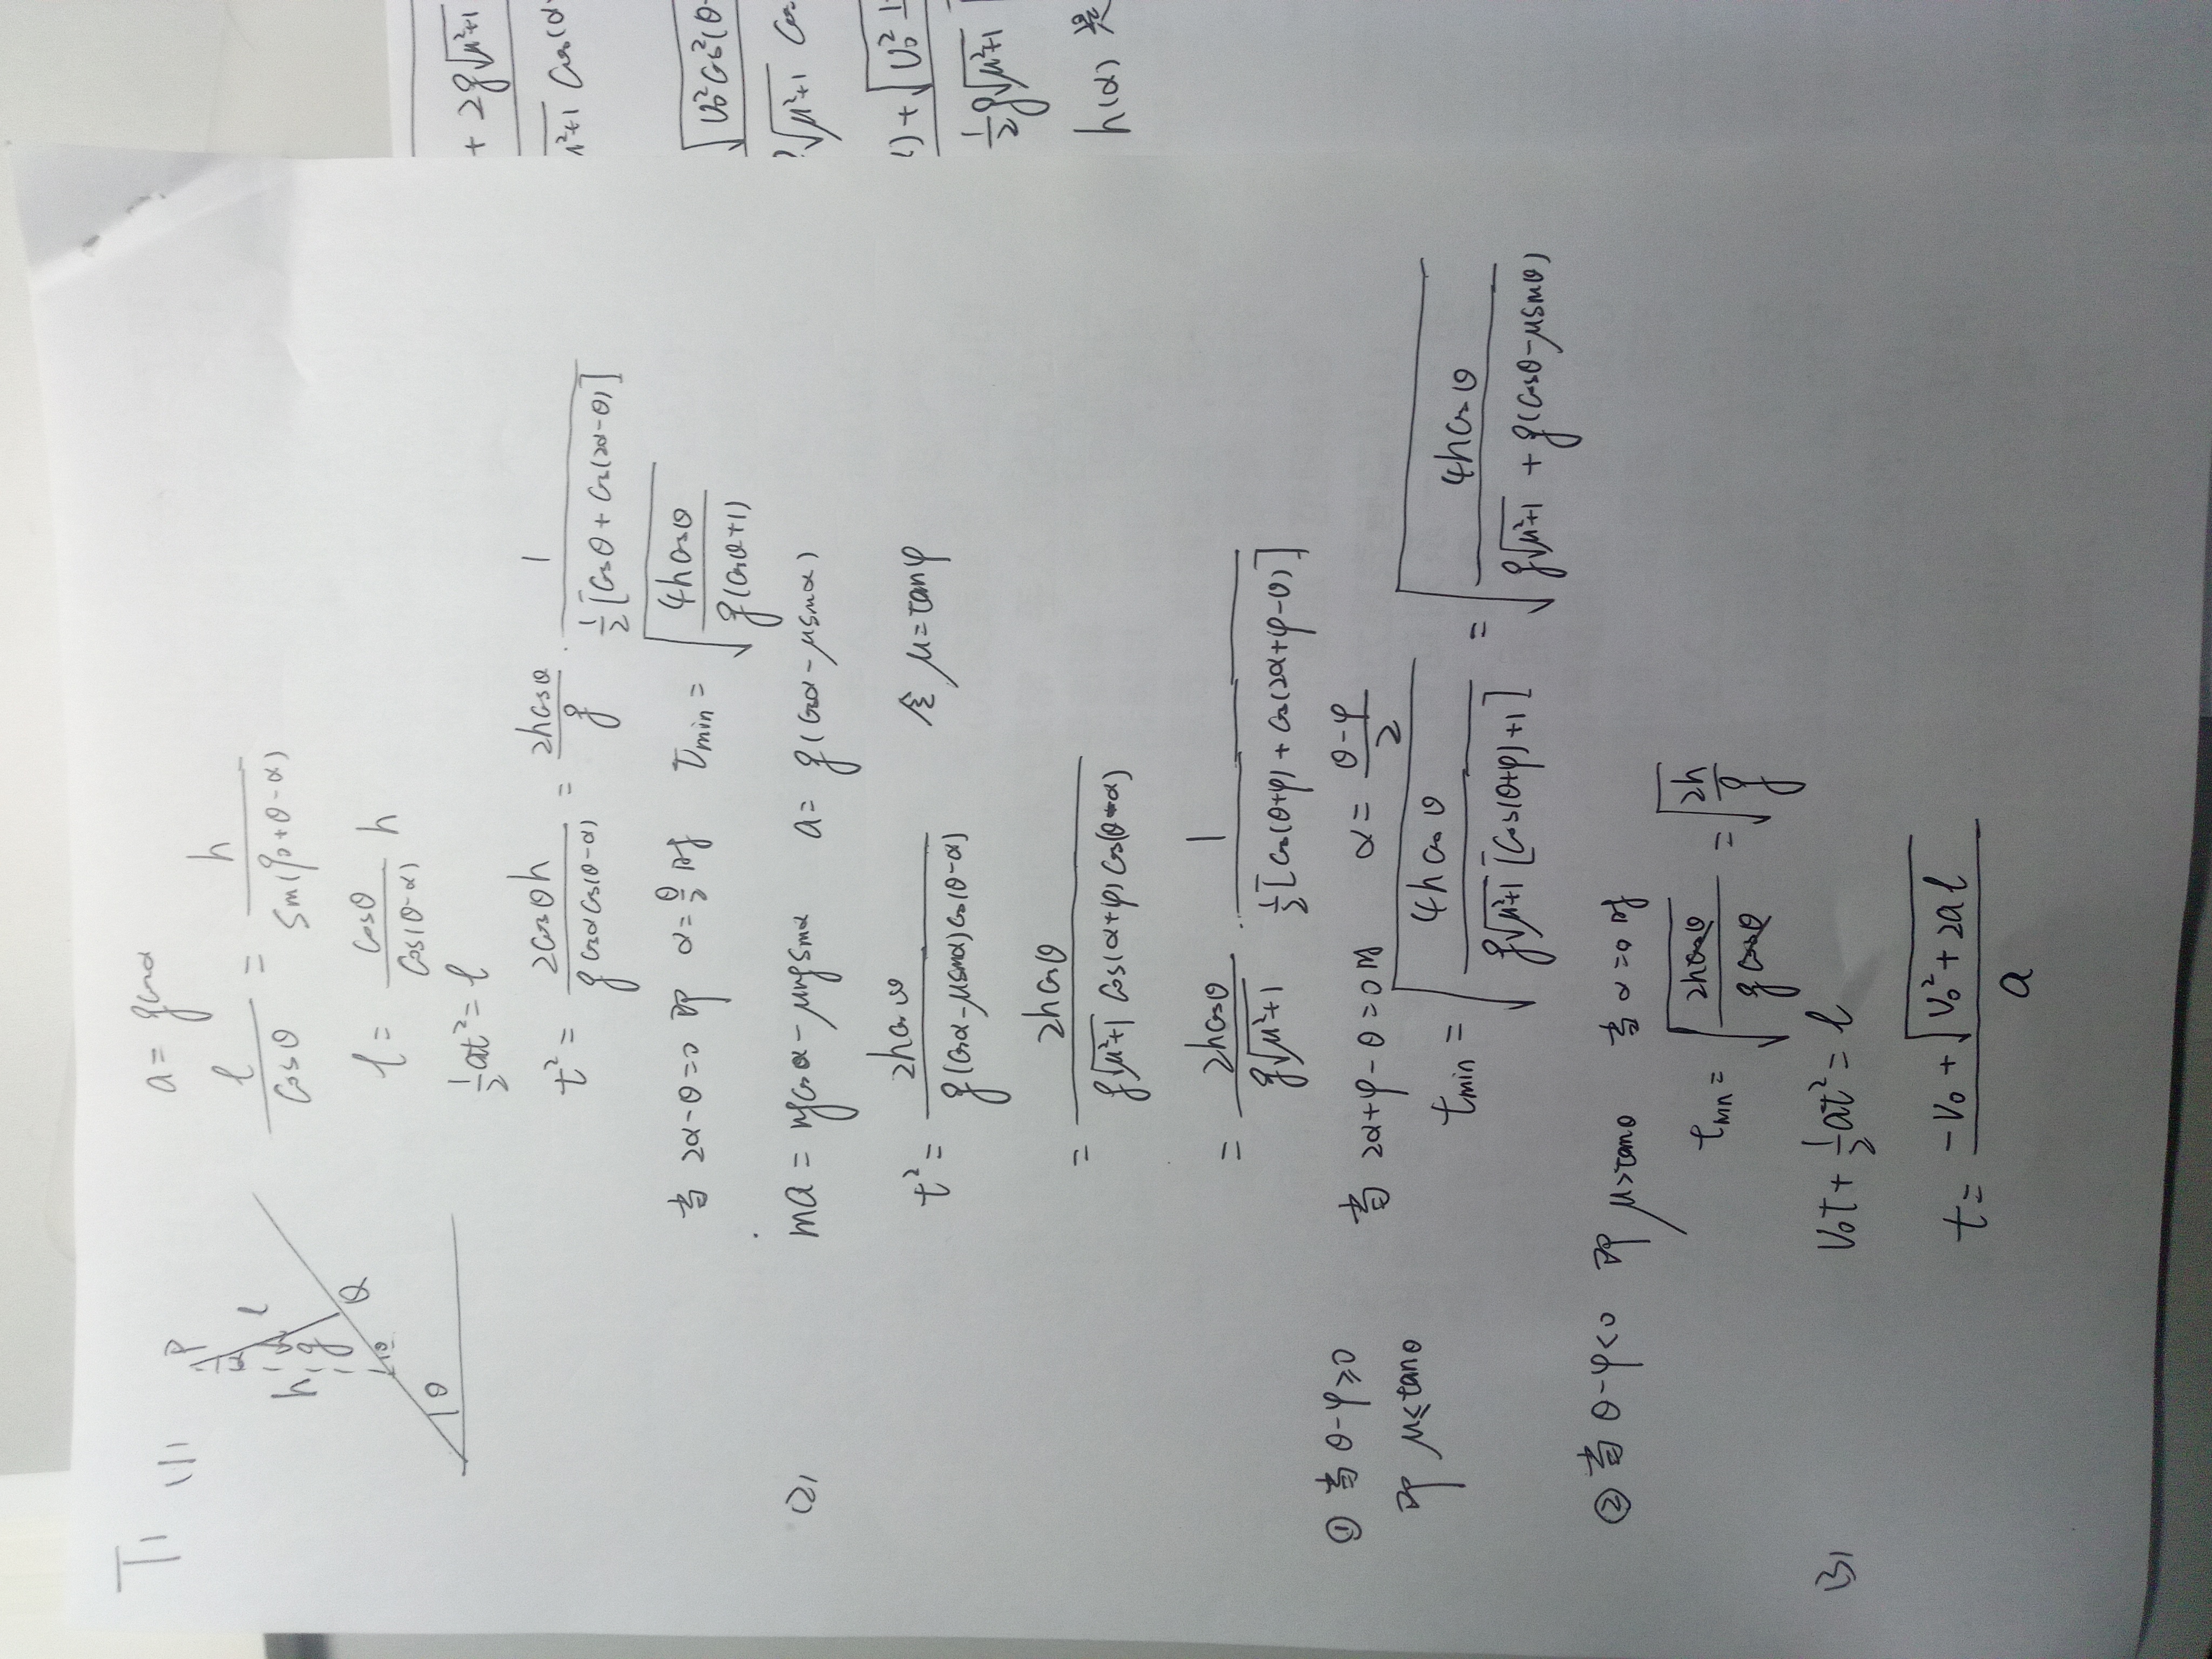 T1 (1)
P
α
l
h
g
θ
θ
θ
a = gcosα
l/cosθ = h/sin(90+θ-α)
l = cosθ/cos(θ-α) h
½at² = l
t² = 2cosθh/(g cosα cos(θ-α)) = 2hcosθ/g · 1/(½[cosθ + cos(2α-θ)])
当 2α-θ=0 即 α=θ/2 时 tmin = √(4hcosθ/(g(cosθ+1)))
(2) ma = mgcosα - μmgsinα a = g(cosα - μsinα)
t² = 2hcosθ/(g(cosα-μsinα)cos(θ-α)) 令 μ=tanφ
= 2hcosθ/(g√(μ²+1) cos(α+φ)cos(θ-α))
= 2hcosθ/(g√(μ²+1)) · 1/(½[cos(θ+φ) + cos(2α+φ-θ)])
① 当 θ-φ≥0 当 2α+φ-θ=0时 α = (θ-φ)/2
即 μ≤tanθ tmin = √(4hcosθ/(g√(μ²+1)[cos(θ+φ)+1])) = √(4hcosθ/(g√(μ²+1) + g(cosθ-μsinθ)))
② 当 θ-φ<0 即 μ>tanθ 当 α=0时
tmin = √(2hcosθ/(gcosθ)) = √(2h/g)
(3) V₀t + ½at² = l
t = (-V₀ + √(V₀²+2al))/a
+ 2g√(μ²+1)
√(μ²+1) cos(α
√(V₀²cos²(θ-
√(μ²+1) cos
) + √(V₀² +
½g√(μ²+1)
h(α) 是